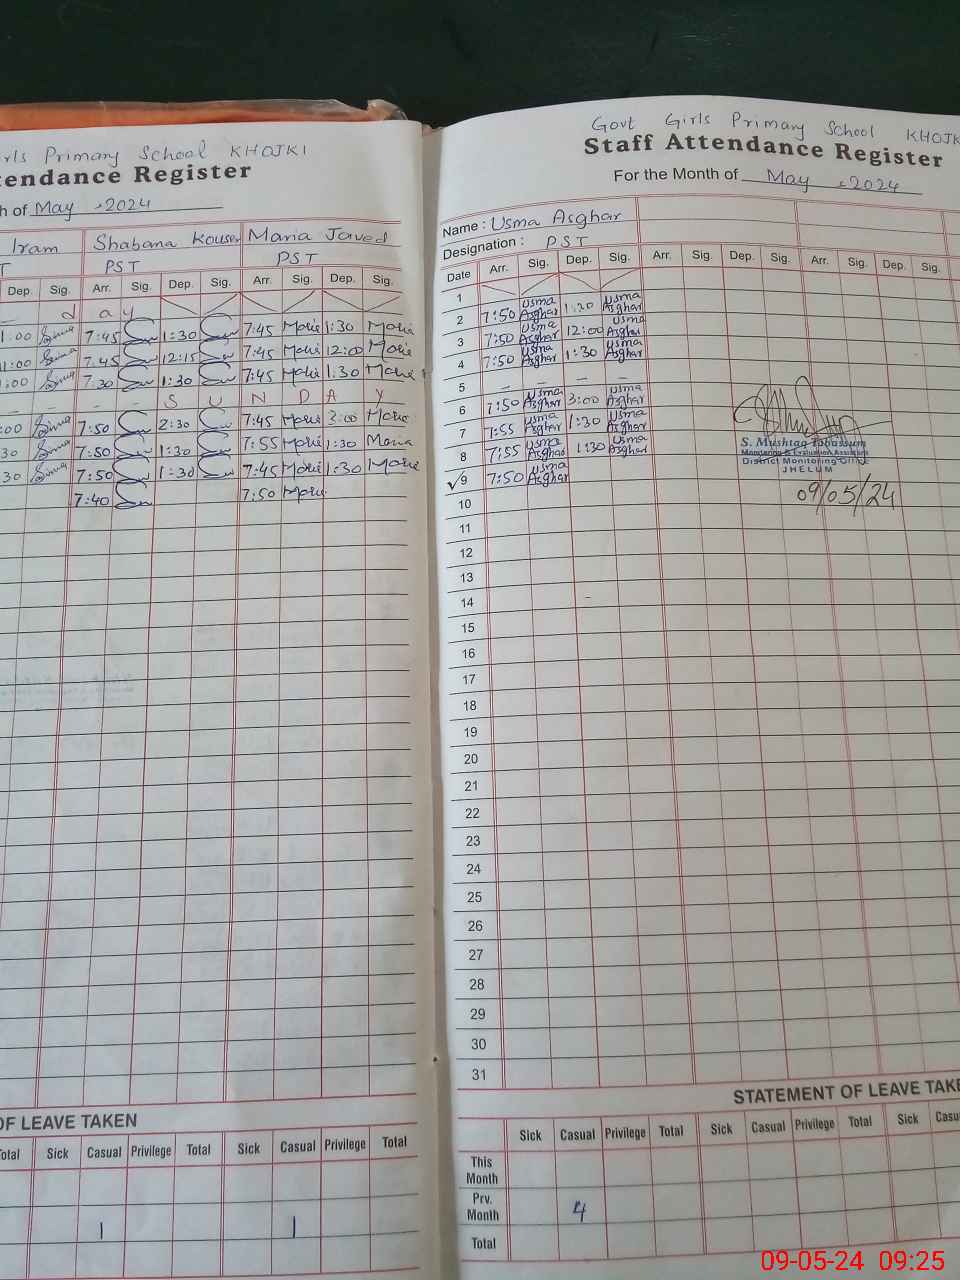 irls Primary School KHOJKI
tendance Register
h of May , 2024
Iram Shabana Kouser Maria Javed
T PST PST
Dep. Sig. Arr. Sig. Dep. Sig. Arr. Sig. Dep. Sig.
d a y
1:00 Sima 7:45 1:30 7:45 Maria 1:30 Maria
1:00 Sima 7:45 12:15 7:45 Maria 12:00 Maria
1:00 Sima 7:30 1:30 7:45 Maria 1:30 Maria
S U N D A Y
:00 Sima 7:50 2:30 7:45 Maria 3:00 Maria
30 Sima 7:50 1:30 7:55 Maria 1:30 Maria
30 Sima 7:50 1:30 7:45 Maria 1:30 Maria
7:40 7:50 Maria
OF LEAVE TAKEN
Total Sick Casual Privilege Total Sick Casual Privilege Total
1 1
Govt Girls Primary School KHOJK
Staff Attendance Register
For the Month of May , 2024
Name : Usma Asghar
Designation : PST
Date Arr. Sig. Dep. Sig. Arr. Sig. Dep. Sig. Arr. Sig. Dep. Sig.
1
2 7:50 Usma Asghar 1:20 Usma Asghar
3 7:50 Usma Asghar 12:00 Usma Asghar
4 7:50 Usma Asghar 1:30 Usma Asghar
5 – – – –
6 7:50 Usma Asghar 3:00 Usma Asghar
7 7:55 Usma Asghar 1:30 Usma Asghar
8 7:55 Usma Asghar 1:30 Usma Asghar
✓9 7:50 Usma Asghar
S. Mushtaq Tabassum
Monitoring & Evaluation Assistant
District Monitoring Office
JHELUM
09/05/24
10
11
12
13
14
15
16
17
18
19
20
21
22
23
24
25
26
27
28
29
30
31
STATEMENT OF LEAVE TAKE
Sick Casual Privilege Total Sick Casual Privilege Total Sick Casu
This Month
Prv. Month 4
Total
09-05-24 09:25